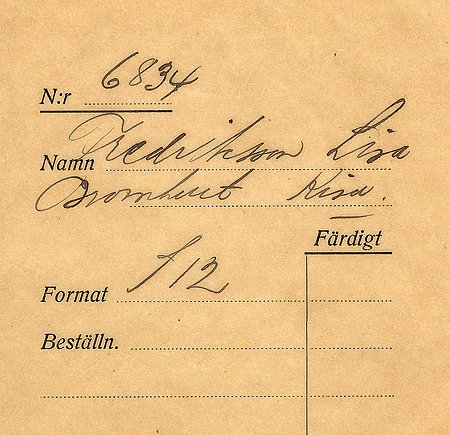 N:r 6834
Namn Fredriksson Lisa
Kisa.
Färdigt
Format f 12
Beställn.